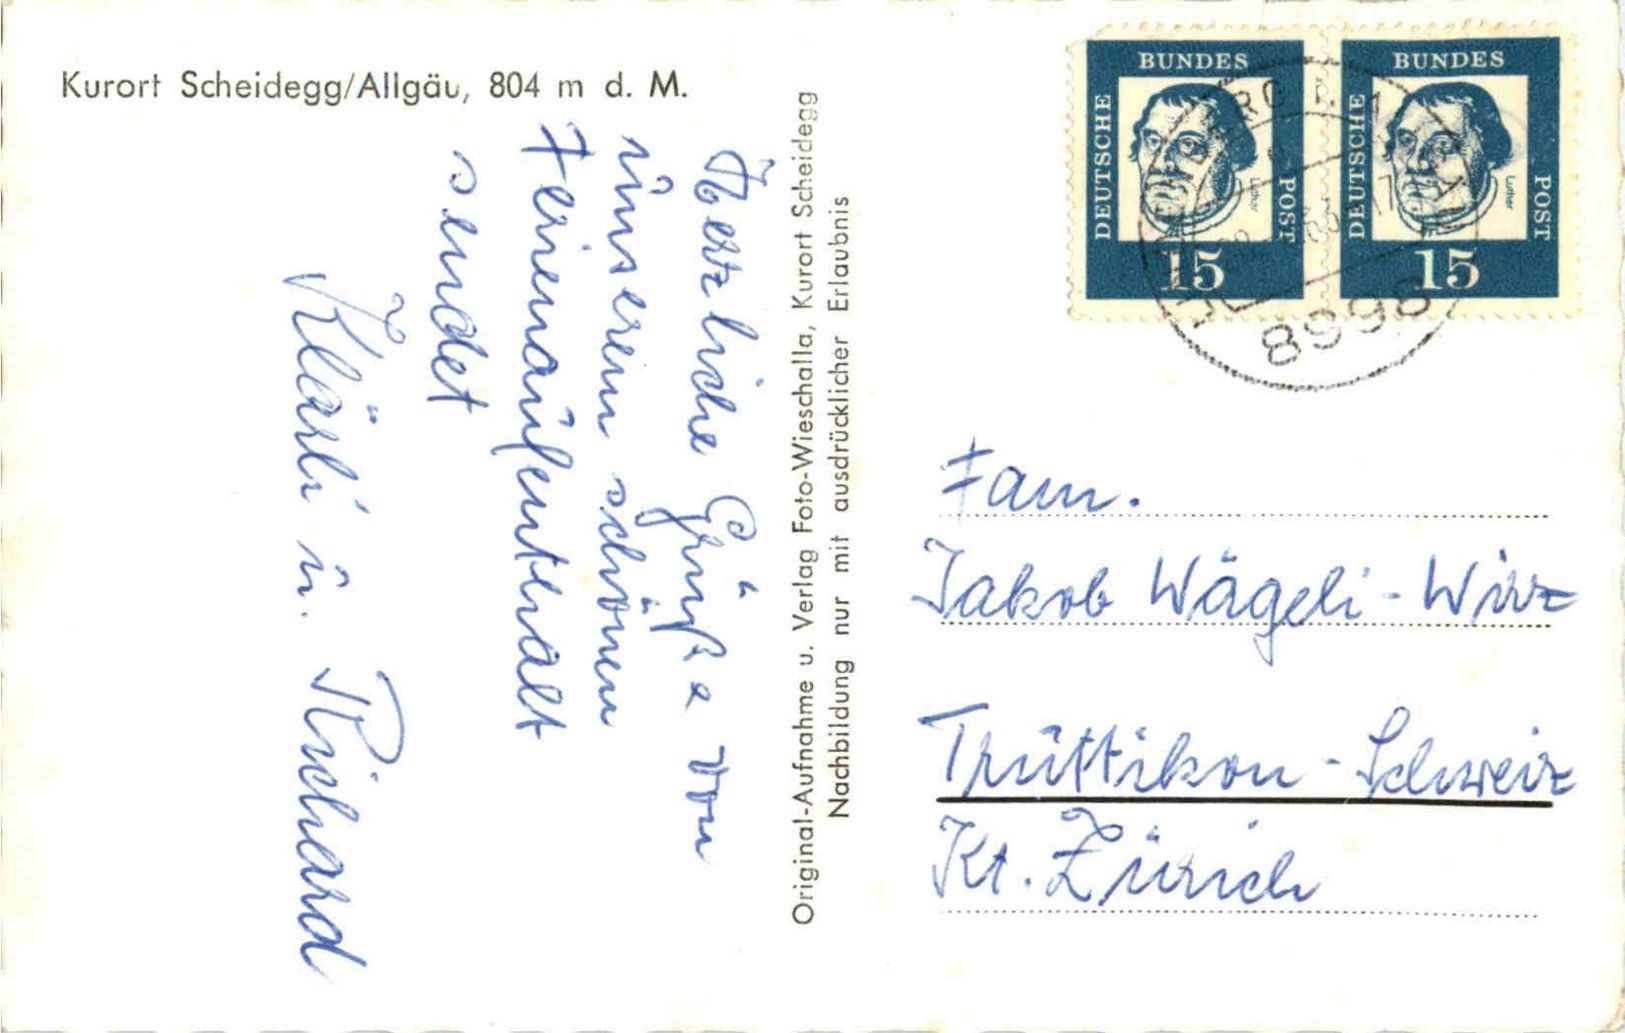 Kurort Scheidegg/Allgäu, 804 m d. M.
Herzliche Grüße von
unserem schönen
Ferienaufenthalt
sendet
Klärli u. Richard
Original-Aufnahme u. Verlag Foto-Wieschalla, Kurort Scheidegg
Nachbildung nur mit ausdrücklicher Erlaubnis
DEUTSCHE BUNDES POST
Luther
15
DEUTSCHE BUNDES POST
Luther
15
8998
Fam.
Jakob Wägeli-Wirz
Trüttikon - Schweiz
Kt. Zürich